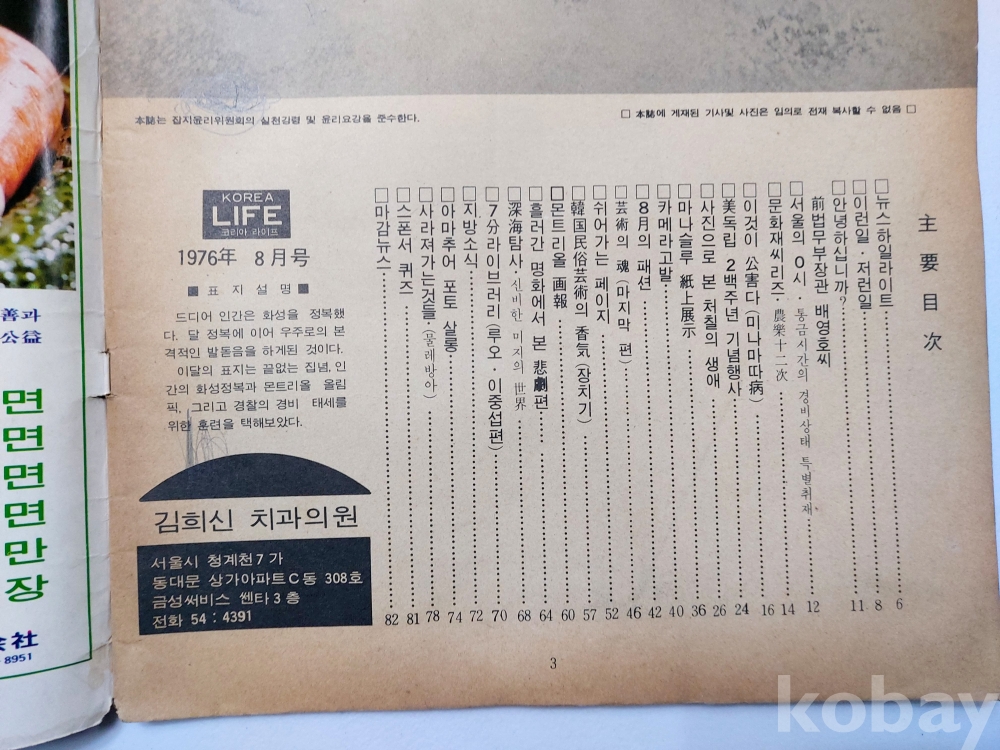 本誌는 잡지윤리위원회의 실천강령 및 윤리요강을 준수한다.
□ 本誌에 게재된 기사및 사진은 임의로 전재 복사할 수 없음 □
主要目次
□뉴스하일라이트 6
□이런일·저런일 8
□안녕하십니까? 11
前법무부장관 배영호씨 12
□서울의 0시·통금시간의 경비상태 특별취재 14
□문화재씨리즈·農樂十二次 16
□이것이 公害다(미나마따病) 24
□美독립 2백주년 기념행사 26
□사진으로 본 처칠의 생애 36
□마나슬루 紙上展示 40
□카메라고발 42
□8月의 패션 46
□芸術의 魂(마지막 편) 52
□쉬어가는 페이지 57
□韓国民俗芸術의 香気(장치기) 60
□몬트리올 画報 64
□흘러간 명화에서 본 悲劇편 68
□深海탐사·신비한 미지의 世界 70
□7分라이브러리(루오·이중섭편) 72
□지방소식 74
□아마추어 포토 살롱 78
□사라져가는것들·(물레방아) 81
□스폰서 퀴즈 82
□마감뉴스
KOREA
LIFE
코리아 라이프
1976年 8月号
■표지설명■
드디어 인간은 화성을 정복했
다. 달 정복에 이어 우주로의 본
격적인 발돋음을 하게된 것이다.
이달의 표지는 끝없는 집념, 인
간의 화성정복과 몬트리올 올림
픽, 그리고 경찰의 경비 태세를
위한 훈련을 택해보았다.
김희신 치과의원
서울시 청계천7가
동대문 상가아파트C동 308호
금성써비스 쎈타3층
전화 54:4391
3
善과
公益
면
면
면
면
만
장
会社
8951
kobay